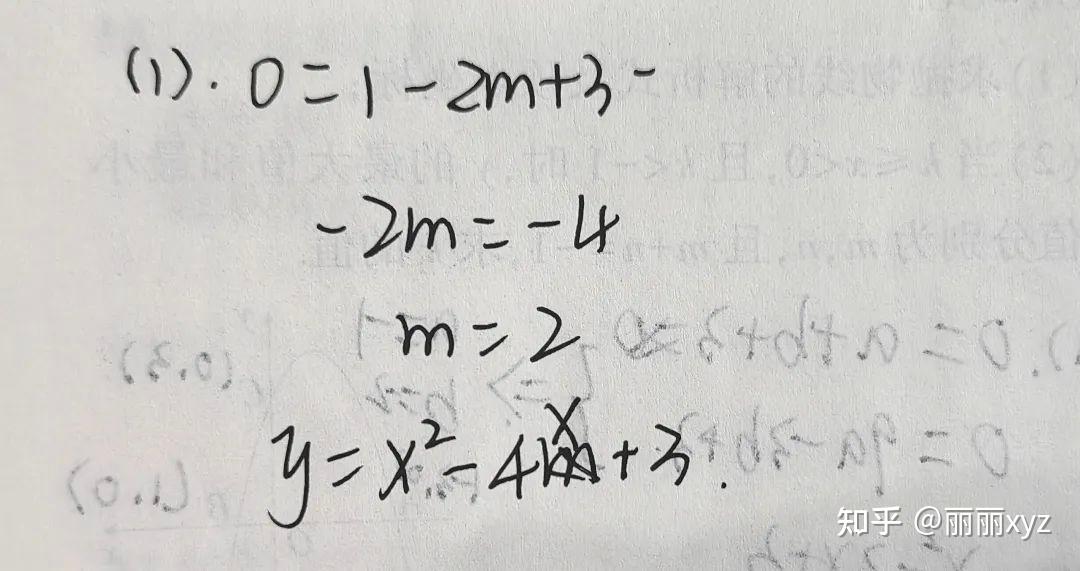 (1). 0 = 1 - 2m + 3 -
-2m = -4
m = 2
y = x² - 4x + 3.
知乎 @丽丽xyz